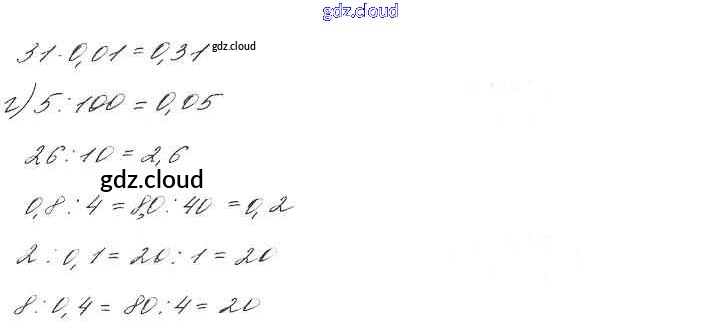 gdz.cloud
31·0,01=0,31 gdz.cloud
г) 5:100=0,05
26:10=2,6
gdz.cloud
0,8:4=8,0:40=0,2
2:0,1=20:1=20
8:0,4=80:4=20